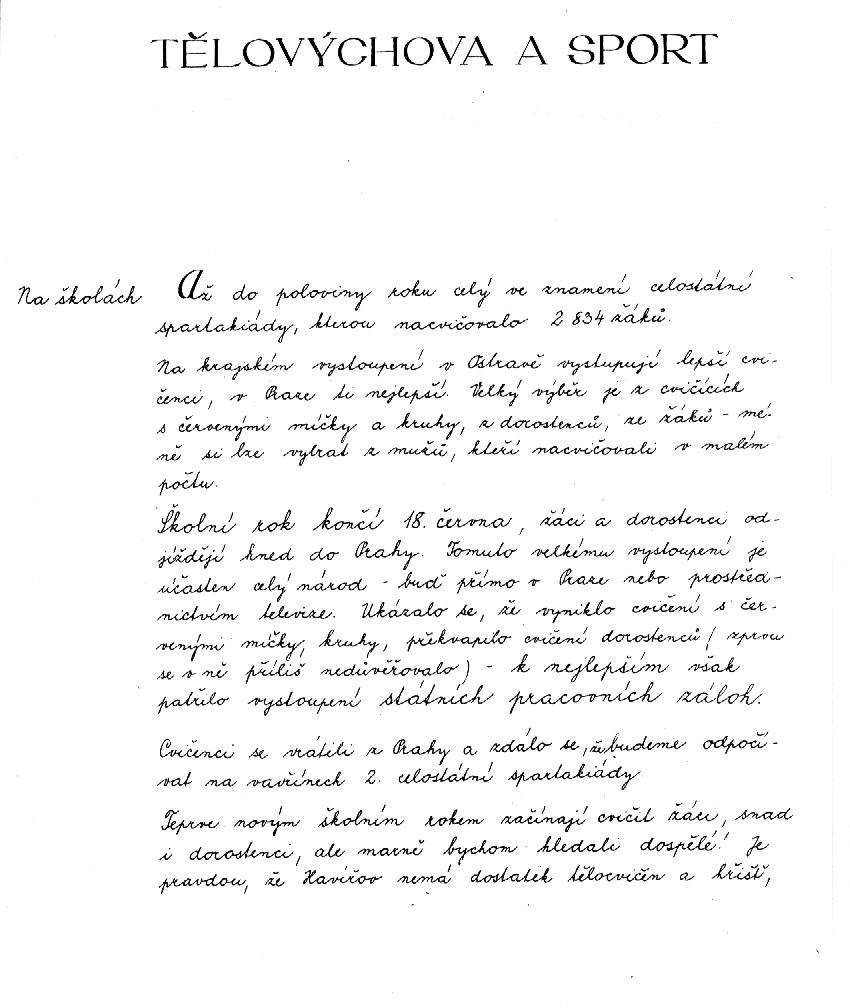 TĚLOVÝCHOVA A SPORT
Na školách
Až do poloviny roku celý ve znamení celostátní
spartakiády, kterou nacvičovalo 2 834 žáků.
Na krajském vystoupení v Ostravě vystupují lepší cvi-
čenci, v Praze ti nejlepší. Velký výběr je z cvičících
s červenými míčky a kruhy, z dorostenců, ze žáků - mé-
ně si lze vybrat z mužů, kteří nacvičovali v malém
počtu.
Školní rok končí 18. června, žáci a dorostenci od-
jíždějí hned do Prahy. Tomuto velkému vystoupení je
účasten celý národ - buď přímo v Praze nebo prostřed-
nictvím televize. Ukázalo se, že vyniklo cvičení s čer-
venými míčky, kruhy, překvapilo cvičení dorostenců ( zprvu
se v ně příliš nedůvěřovalo ) - k nejlepším však
patřilo vystoupení státních pracovních záloh.
Cvičenci se vrátili z Prahy a zdálo se, že budeme odpočí-
vat na vavřínech 2. celostátní spartakiády
Teprve novým školním rokem začínají cvičit žáci, snad
i dorostenci, ale marně bychom hledali dospělé! Je
pravdou, že Havířov nemá dostatek tělocvičen a hřišť,